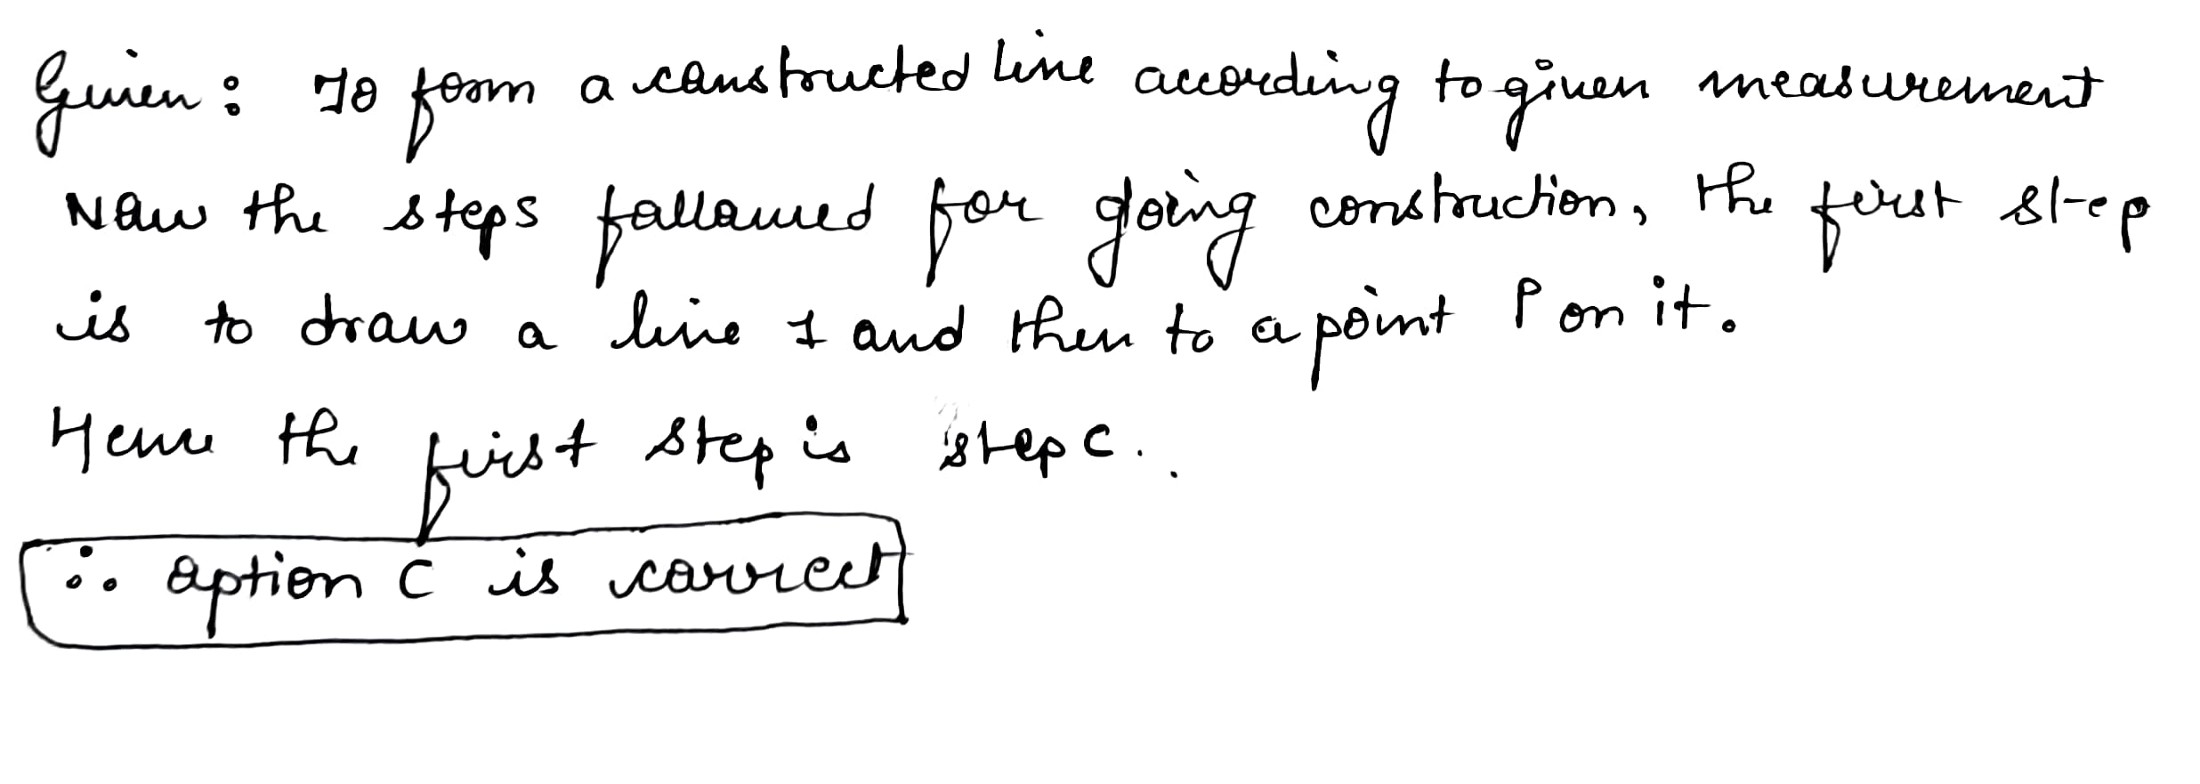 Given: To form a constructed line according to given measurement
Now the steps followed for going construction, the first step
is to draw a line 1 and then to a point P on it.
Hence the first step is step C..
∴ option C is correct